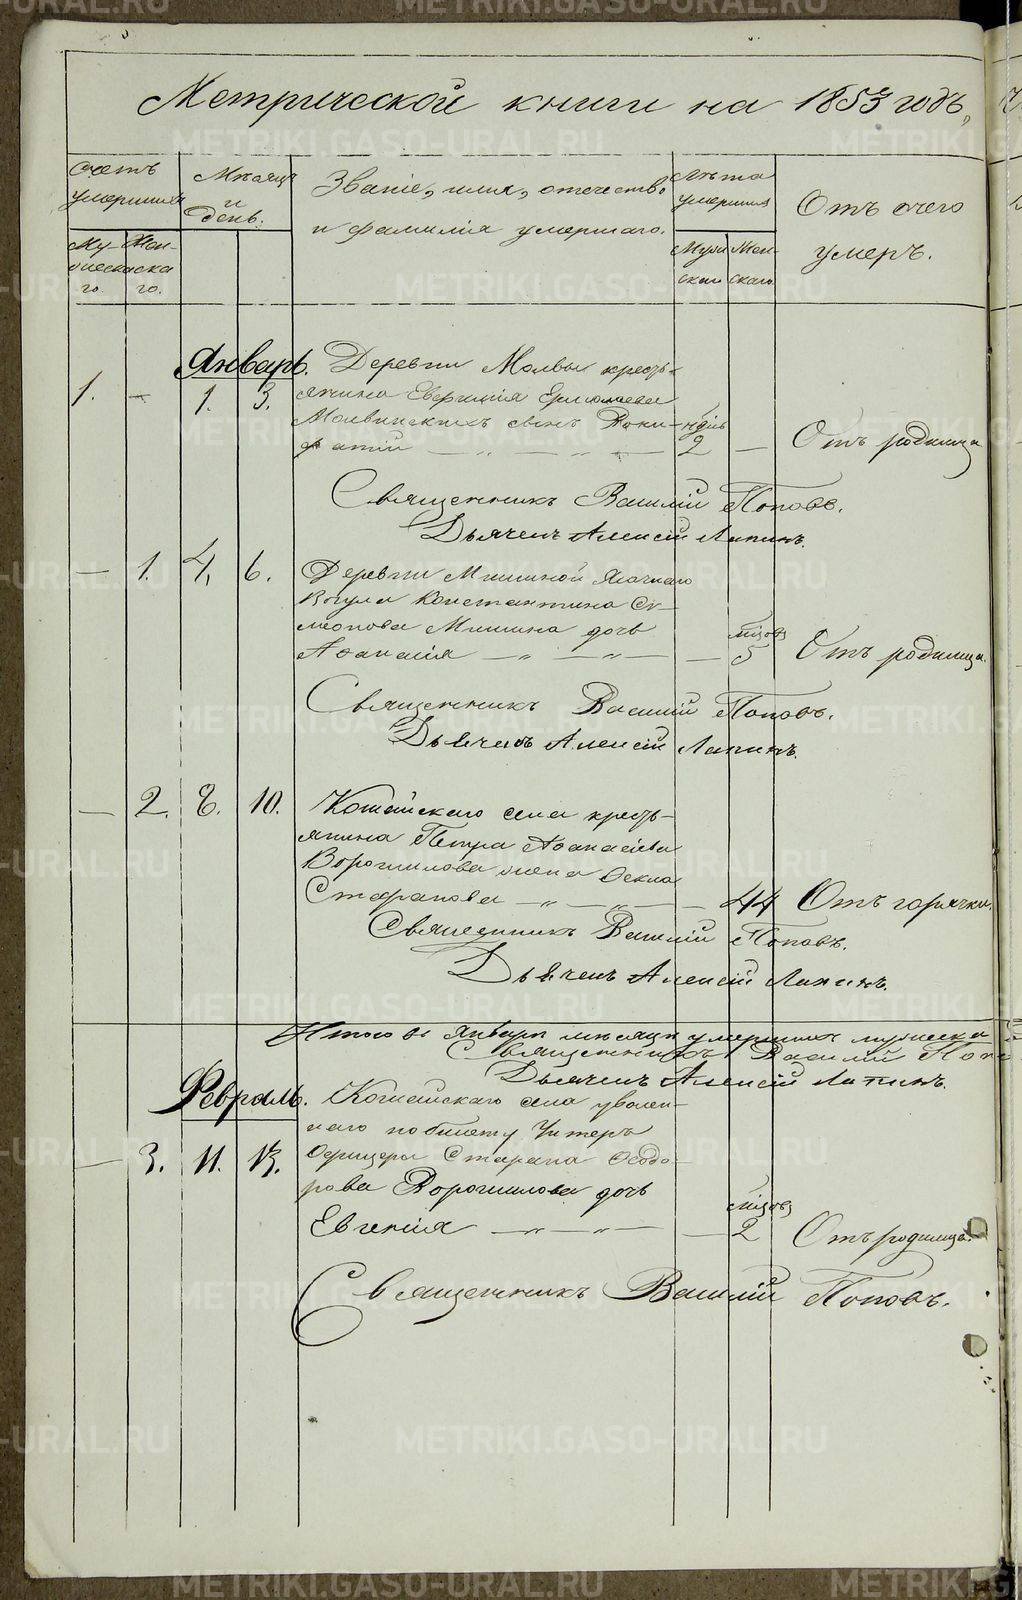 Метрической книги на 1853 годъ,
Счетъ умершихъ
Мѣсяцъ и день.
Званіе, имя, отечество и фамилія умершаго.
Лѣта умершихъ
Отъ чего умеръ.
Мужескаго.
Женскаго.
Январь. Деревни Молвы кресть-
1. — 1. 3. янина Ермолаева
Молвинскихъ сынъ Вони- ндѣль
фатій — „ — „ — 2 — Отъ родимца
Священникъ Василій Поповъ.
Дьячекъ Алексій Лапинъ.
— 1. 4. 6. Деревни Мишиной Ясачнаго
Вогула Константина Си-
меонова Мишина дочь мѣсяцъ
Афанасія — „ — „ — 5 Отъ родимца.
Священникъ Василій Поповъ.
Дьячекъ Алексій Лапинъ.
— 2. 8. 10. Кошайскаго села кресть-
янина Петра Афанасіева
Ворошилова жена Фекла
Стефанова — „ — „ — 44 Отъ горячки.
Священникъ Василій Поповъ.
Дьячекъ Алексій Лапинъ.
Итого въ Январѣ мѣсяцѣ умершихъ мужеска
Священникъ Василій Попо
Дьячекъ Алексій Лапинъ.
Февраль. Кошайскаго села уволен-
наго по билету Унтеръ
— 3. 11. 13. Офицера Стефана Феодо-
рова Ворошилова дочь мѣсяцъ
Евгенія — „ — „ — 2 Отъ родимца.
Священникъ Василій Поповъ.
METRIKI.GASO-URAL.RU